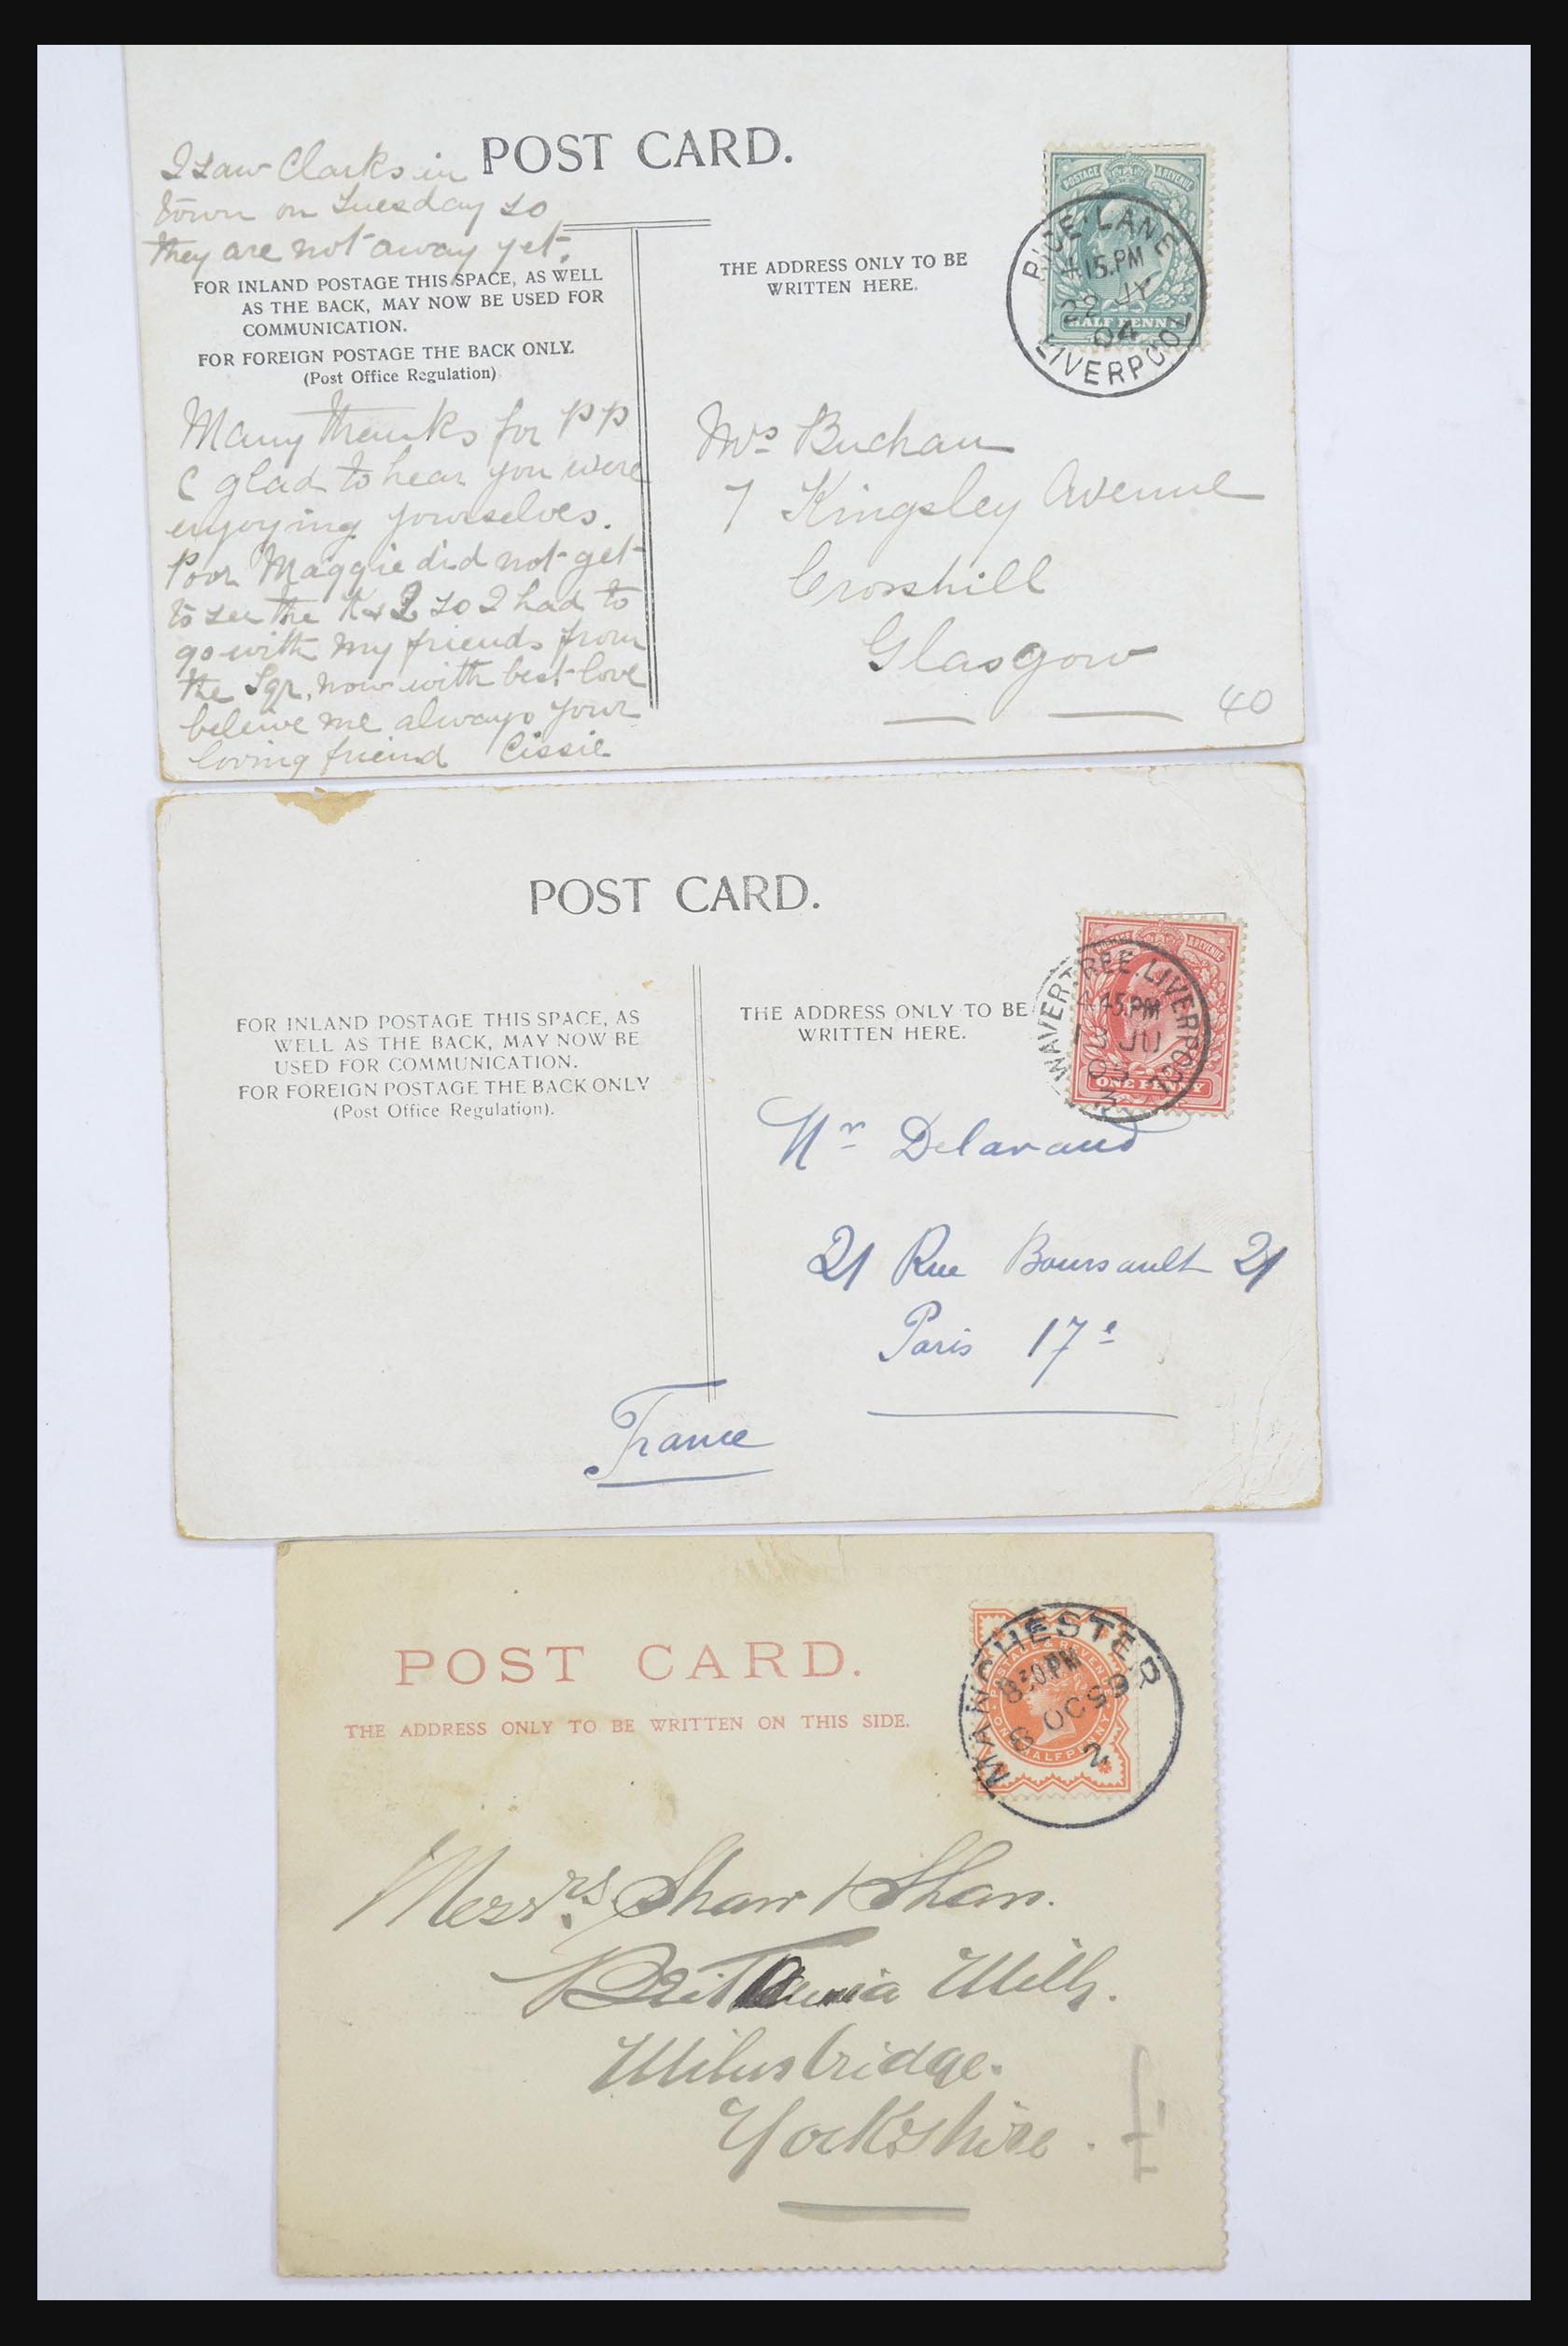 I saw Clarks in
town on Tuesday so
they are not away yet.
POST CARD.
FOR INLAND POSTAGE THIS SPACE, AS WELL
AS THE BACK, MAY NOW BE USED FOR
COMMUNICATION.
FOR FOREIGN POSTAGE THE BACK ONLY.
(Post Office Regulation)
THE ADDRESS ONLY TO BE
WRITTEN HERE.
POSTAGE & REVENUE
HALF PENNY
RICE LANE
4 15.PM
22 JY
04
LIVERPOOL
Many thanks for PP
C glad to hear you were
enjoying yourselves.
Poor Maggie did not get
to see the K & Q so I had to
go with my friends from
the Sqr. now with best love
beleive me always your
loving friend Cissie
Mrs Buchan
7 Kingsley Avenue
Crosshill
Glasgow
40
POST CARD.
FOR INLAND POSTAGE THIS SPACE, AS
WELL AS THE BACK, MAY NOW BE
USED FOR COMMUNICATION.
FOR FOREIGN POSTAGE THE BACK ONLY
(Post Office Regulation).
THE ADDRESS ONLY TO BE
WRITTEN HERE.
POSTAGE & REVENUE
ONE PENNY
WAVERTREE. LIVERPOOL
4 45.PM
JU
03
3
Mr Delavaud
21 Rue Boursault 21
Paris 17e
France
POST CARD.
THE ADDRESS ONLY TO BE WRITTEN ON THIS SIDE.
POSTAGE & REVENUE
ONE HALFPENNY
MANCHESTER
8 30PM
8 OC 99
2
Messrs. Shaw & Shaw.
Britannia Mills.
Milnsbridge.
Yorkshire.